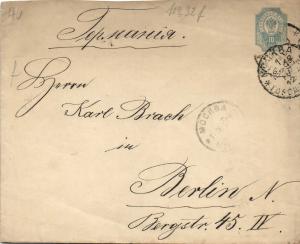 Германія.
Herrn
Karl Brach
in
Berlin N.
Bergstr. 45. IV.
МОСКВА
МОСКВА
10